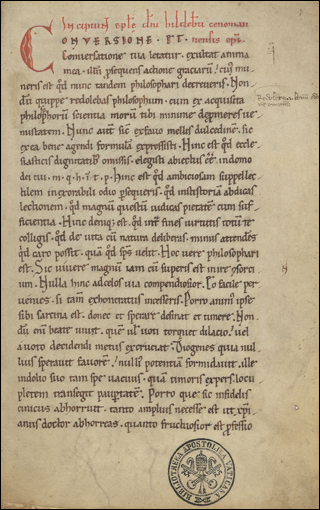 Incipiunt eple dni hildeberti cenoman
CONVERSIONE . ET . nensis epi.
Conversatione tua letatur . exultat anima
mea . illi psequens actione gratiarū ; cui mu
neris est qd nunc tandem philosophari decreveris . Non
dū quippe redolebas philosophum . cum ex acquisita
philosophorū scientia morū tibi minime depmeres ve
nustatem . Hunc autē sic ex favo mellis dulcedine . sic
ex ea bene agendi formulā expressisti . Hinc est qd eccle
siasticis dignitatib omissis . elegisti abiect esse in domo
dei tui . Hinc est qd ambiciosam supellec
tilem inexorabili odio persequeris . qd
lectionem . qd magnū questū iudicas pietatē cum suf
ficientia . Hinc deniq est . qd infra fines virtutis totū te
colligis . qd de vita cū natura deliberas . minus attendēs
qd caro possit . quā qd sps velit . Hoc vere philosophari
est . Sic vivere magnū iam cū superis est inire consor
cium . Nulla hinc ad celos via compendiosior . Eo facile per
venies . si tam exoneratus incesseris . Porro anim ipse
sibi sarcina est . donec et sperare desinat et timere . Non
dū enī beate vivit . quē ul voti torquet dilacio . vel
a voto decidendi metus excruciat . Diogenes quia nul
lius speravit favorē . null potentiā formidavit . ille
in dolio suo tam spe vacuus . quā timoris expers . locu
pletem transegit paupertatē . Porro que sic infidelis
cinicus abhorruit . tanto amplius necesse est ut xpi
anus doctor abhorreas . quanto fructuosior est pfessio
BIBLIOTHECA APOSTOLICA VATICANA